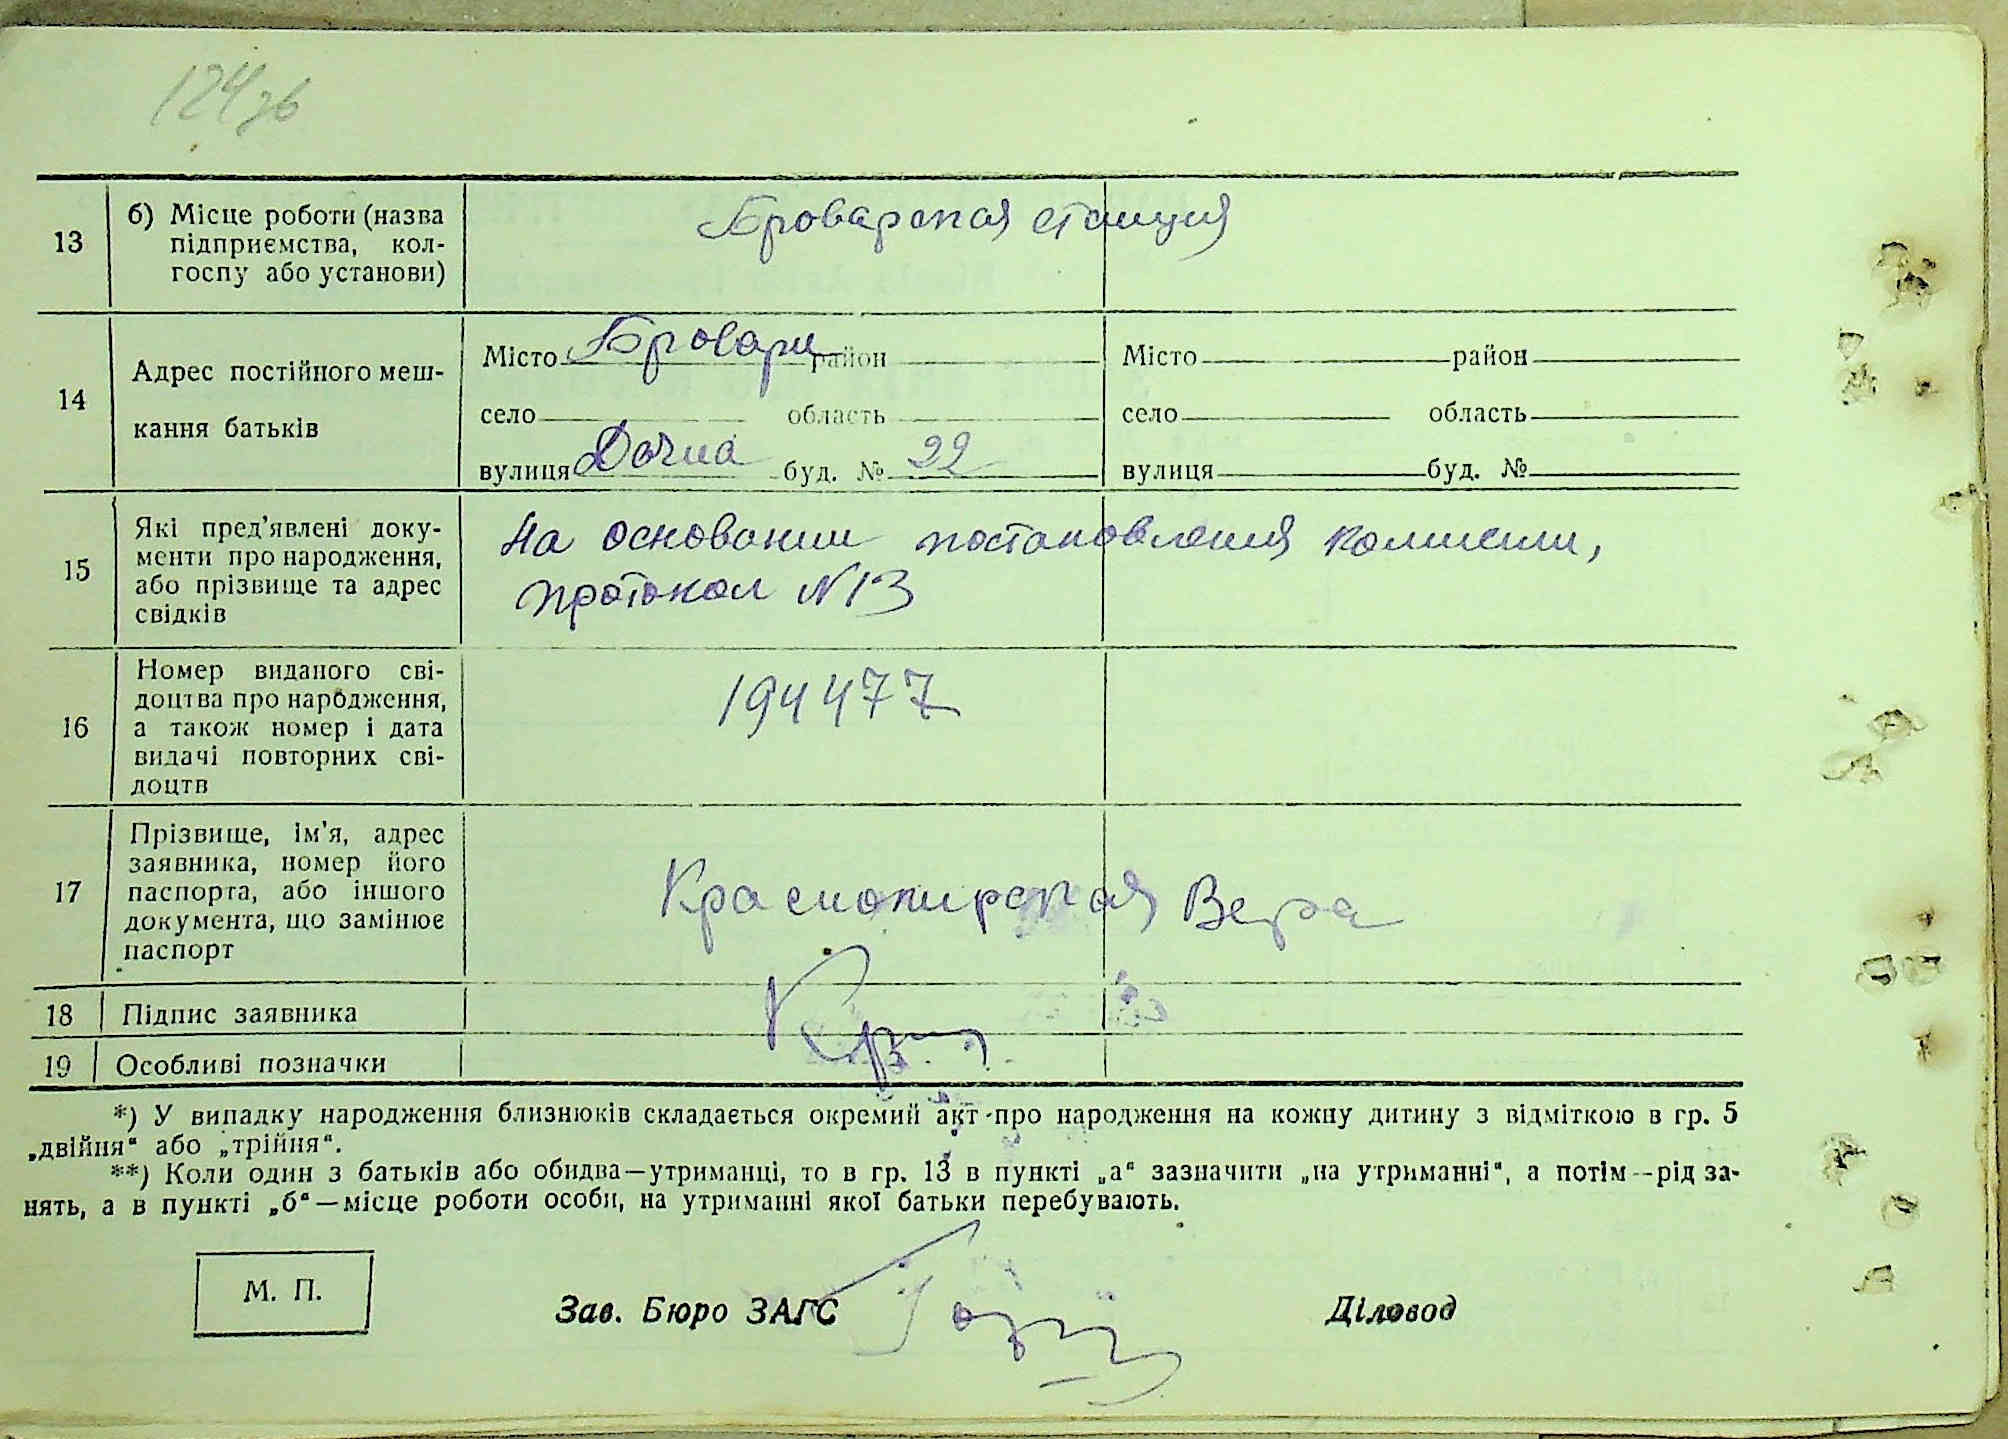 124зв
13
б) Місце роботи (назва
підприємства, кол-
госпу або установи)
Броварская станция
14
Адрес постійного меш-
кання батьків
Місто Бровари район
село область
вулиця Дачна буд. № 22
Місто район
село область
вулиця буд. №
15
Які пред'явлені доку-
менти про народження,
або прізвище та адрес
свідків
На основании постановления комиссии,
протокол N 13
16
Номер виданого сві-
доцтва про народження,
а також номер і дата
видачі повторних сві-
доцтв
194477
17
Прізвище, ім'я, адрес
заявника, номер його
паспорта, або іншого
документа, що замінює
паспорт
Краснопирская Вера
18
Підпис заявника
19
Особливі позначки
*) У випадку народження близнюків складається окремий акт про народження на кожну дитину з відміткою в гр. 5
„двійня“ або „трійня“.
**) Коли один з батьків або обидва—утриманці, то в гр. 13 в пункті „а“ зазначити „на утриманні“, а потім—рід за-
нять, а в пункті „б“—місце роботи особи, на утриманні якої батьки перебувають.
М. П.
Зав. Бюро ЗАГС
Діловод